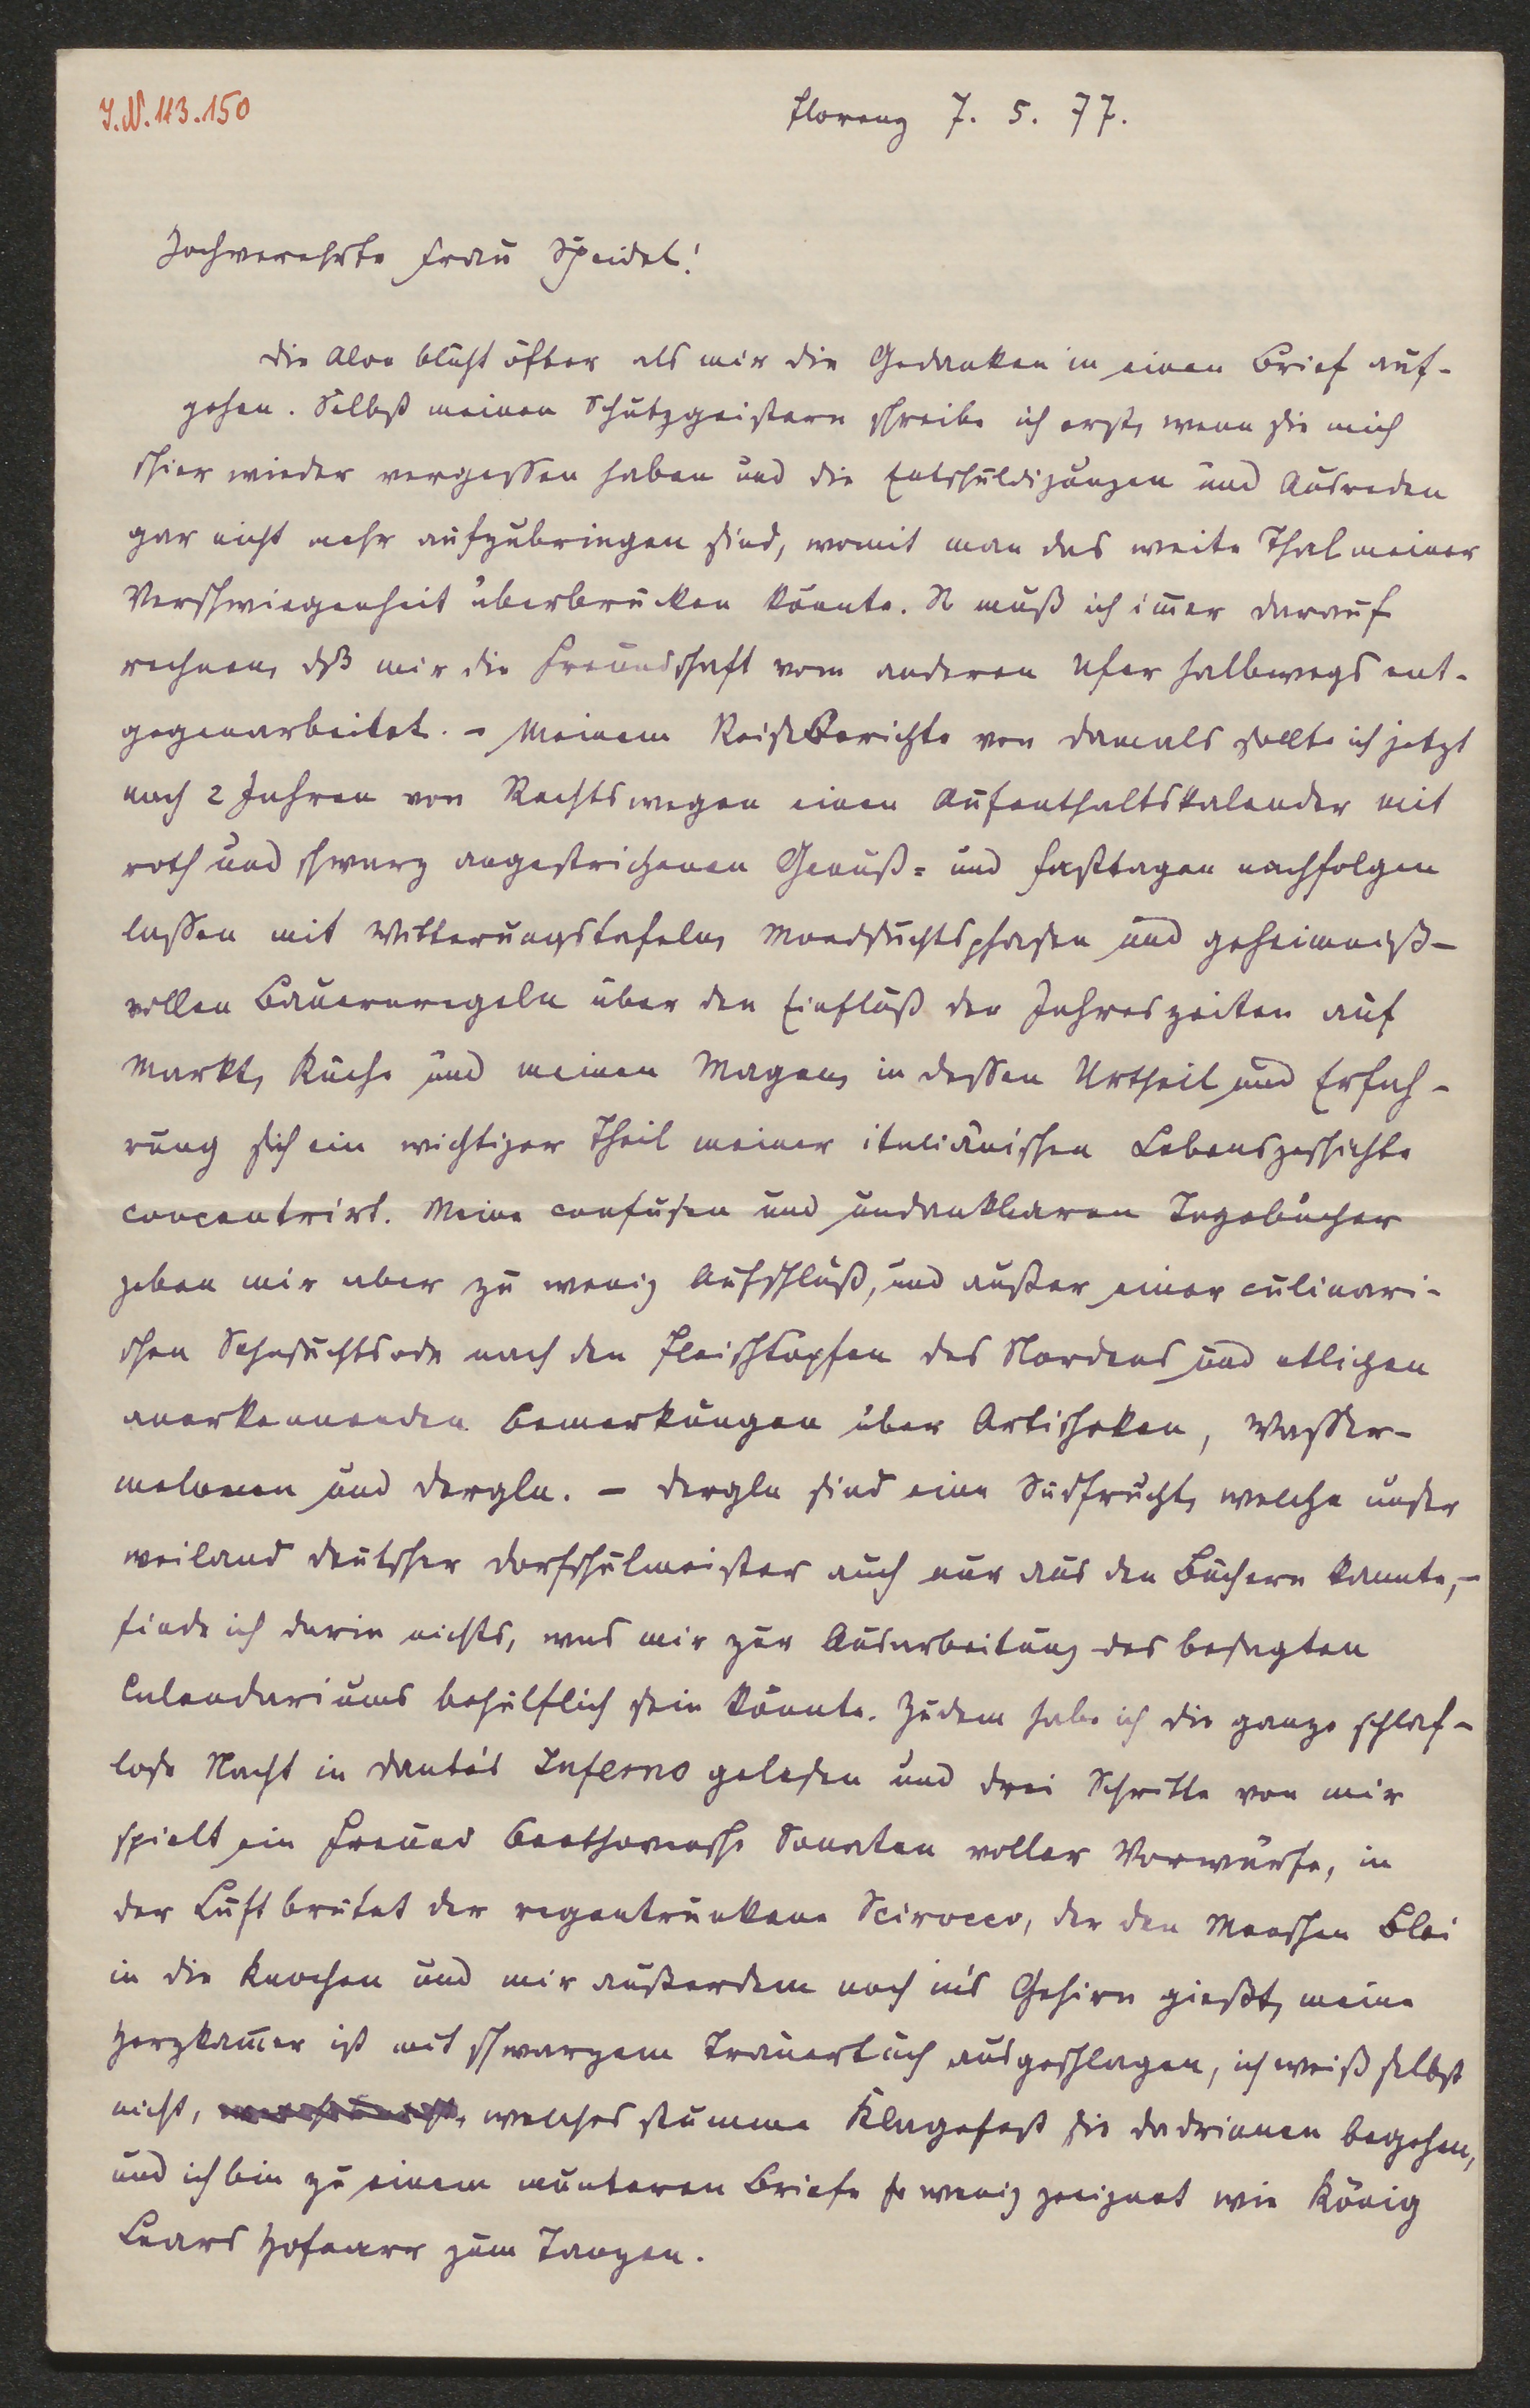 I.N. 113.150
Florenz 7. 5. 77.
Hochverehrte Frau Speidel!
Die Aloe blüht öfter als mir die Gedanken in einen Brief auf-
gehen. Selbst meinen Schutzgeistern schreibe ich erst, wenn sie mich
schier wieder vergessen haben und die Entschuldigungen und Ausreden
gar nicht mehr aufzubringen sind, womit man das weite Thal meiner
Verschwiegenheit überbrücken könnte. So muß ich im̅er darauf
rechnen, dß mir die Freundschaft vom anderen Ufer halbwegs ent-
gegenarbeitet. – Meinem Reiseberichte von damals sollte ich jetzt
nach 2 Jahren von Rechtswegen einen Aufenthaltskalender mit
roth und schwarz angestrichenen Genuß- und Fasttagen nachfolgen
lassen mit Witterungstafeln, Mondsuchtsphasen und geheimniß-
vollen Bauernregeln über den Einfluß der Jahreszeiten auf
Markt, Küche und meinen Magen, in dessen Urtheil und Erfah-
rung sich ein wichtiger Theil meiner italiänischen Lebensgeschichte
concentrirt. Meine confusen und undankbaren Tagebücher
geben mir aber zu wenig Aufschluß, und außer einer culinari-
schen Sehnsuchtsode nach den Fleischtöpfen des Nordens und etlichen
anerkennenden Bemerkungen über Artischoken, Wasser-
melonen und dergln. – dergln sind eine Südfrucht, welche unser
weiland deutscher Dorfschulmeister auch nur aus den Büchern kannte, –
finde ich darin nichts, was mir zur Ausarbeitung des besagten
Calendariums behülflich sein könnte. Zudem habe ich die ganze schlaf-
lose Nacht in Dante's Inferno gelesen und drei Schritte von mir
spielt ein Freund Beethovensche Sonaten voller Vorwürfe, in
der Luft brütet der regentrunkene Scirocco, der den Menschen Blei
in die Knochen und mir außerdem noch in's Gehirn gießt, meine
Herzkam̅er ist mit schwarzem Trauertuch ausgeschlagen, ich weiß selbst
nicht, welches stumme Klagefest sie dadrinnen begehen,
und ich bin zu einem munteren Briefe so wenig geeignet wie König
Lears Hofnarr zum Tanzen.